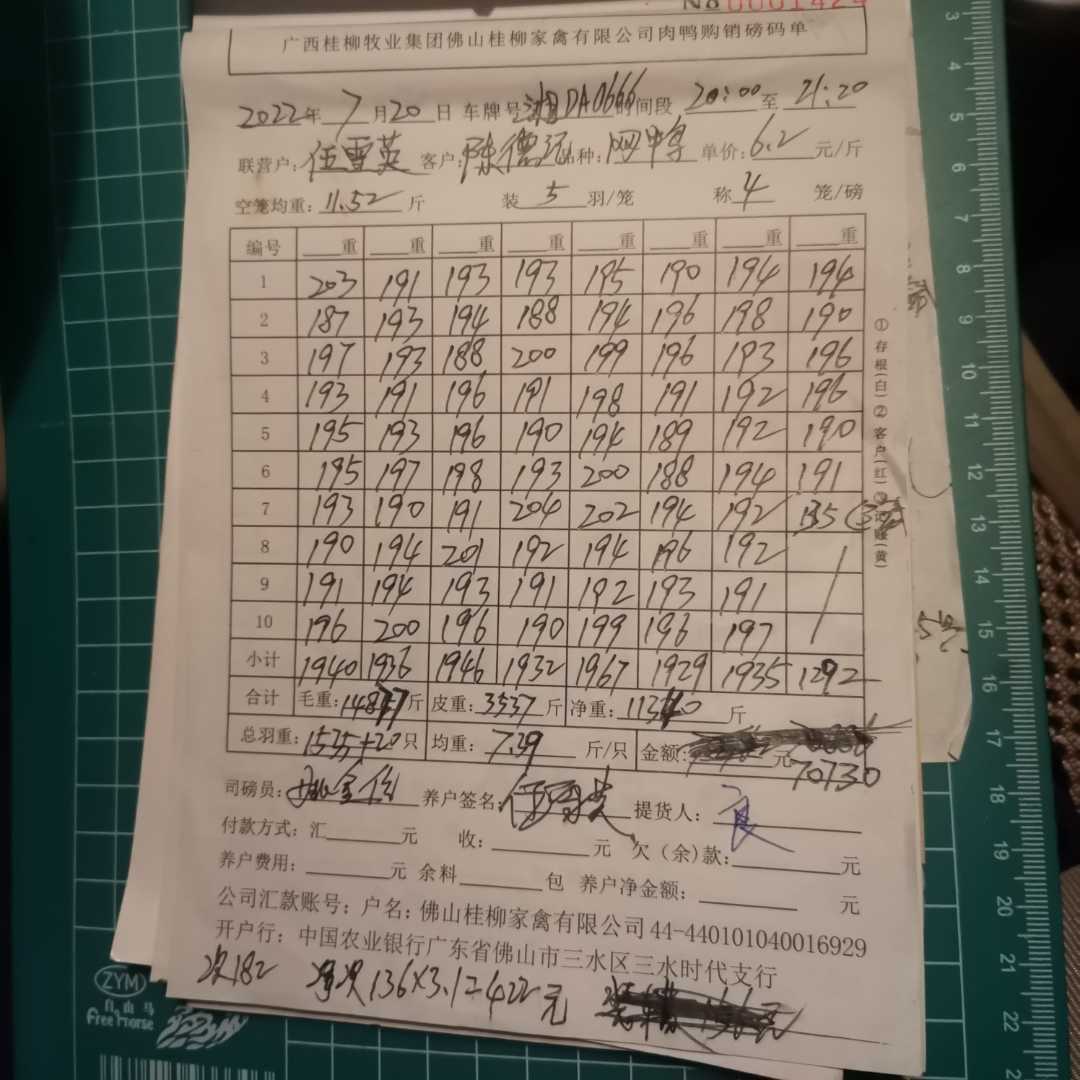 N8 0001424
广西桂柳牧业集团佛山桂柳家禽有限公司肉鸭购销磅码单
2022年 7月20日 车牌号 湘DA0666 时间段 20:00至 21:20
联营户:伍雪英 客户:陈德记 品种: 单价:6.2 元/斤
空笼均重:11.52斤 装 5 羽/笼 称 4 笼/磅
编号 重 重 重 重 重 重 重 重
1 203 191 193 193 195 190 194 194
2 187 193 194 188 194 196 198 190
3 197 193 188 200 199 196 193 196
4 193 191 196 191 198 191 192 196
5 195 193 196 190 194 189 192 190
6 195 197 198 193 200 188 194 191
7 193 190 191 204 202 194 192 135
8 190 194 201 192 194 196 192 /
9 191 194 193 191 192 193 191 /
10 196 200 196 190 199 196 197 /
小计 1940 1936 1946 1932 1967 1929 1935 1292
合计 毛重:14877斤 皮重:3537斤 净重:11340斤
总羽重:1535+20只 均重:7.29 斤/只 金额: 元 70730
司磅员: 养户签名: 提货人:
付款方式:汇 元 收: 元 欠(余)款: 元
养户费用: 元 余料 包 养户净金额: 元
公司汇款账号:户名:佛山桂柳家禽有限公司 44-440101040016929
开户行:中国农业银行广东省佛山市三水区三水时代支行
次182 净次136×3.1=422元
①存根(白)②客户(红)③记账(黄)
ZYM
自由马
Free Horse
3
4
5
6
7
8
9
10
11
12
13
14
15
16
17
18
19
20
21
22